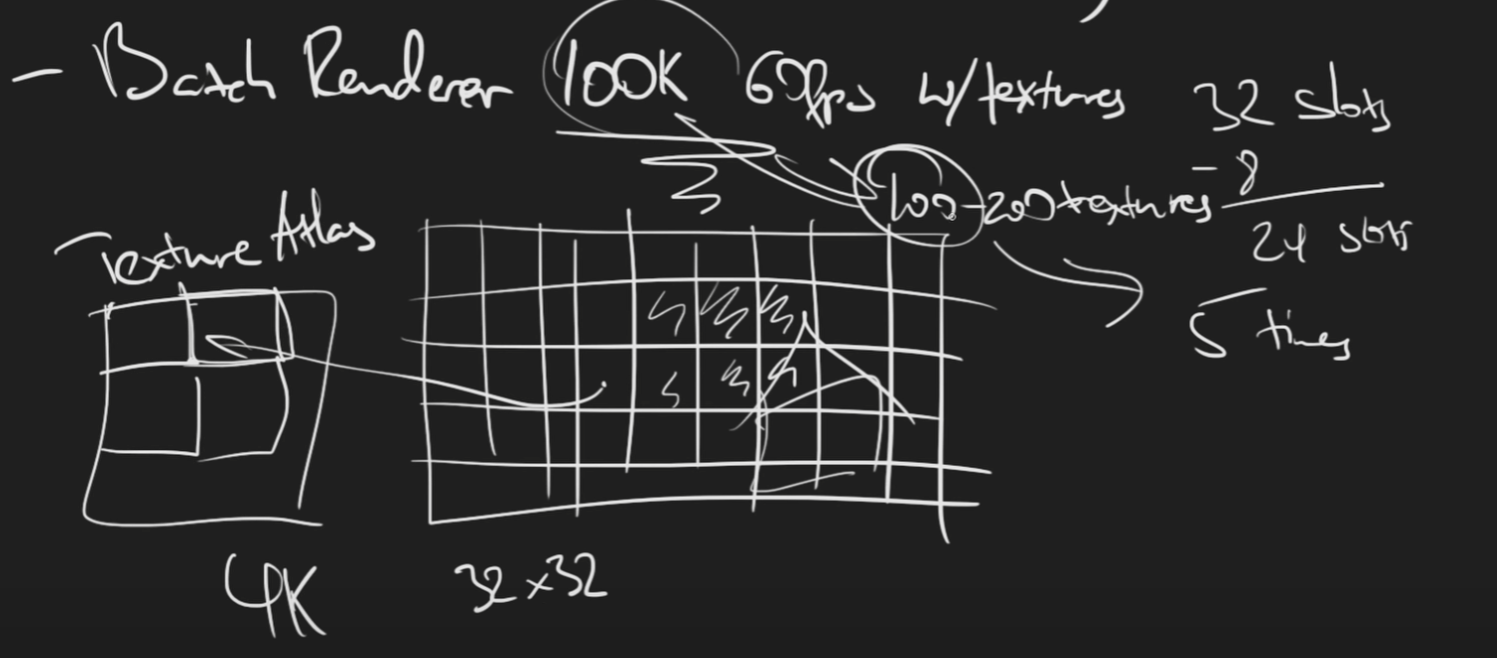 - Batch Renderer 100K 60fps w/textures 32 slots
100-200 textures - 8
24 slots
Texture Atlas
5 times
4K 32x32